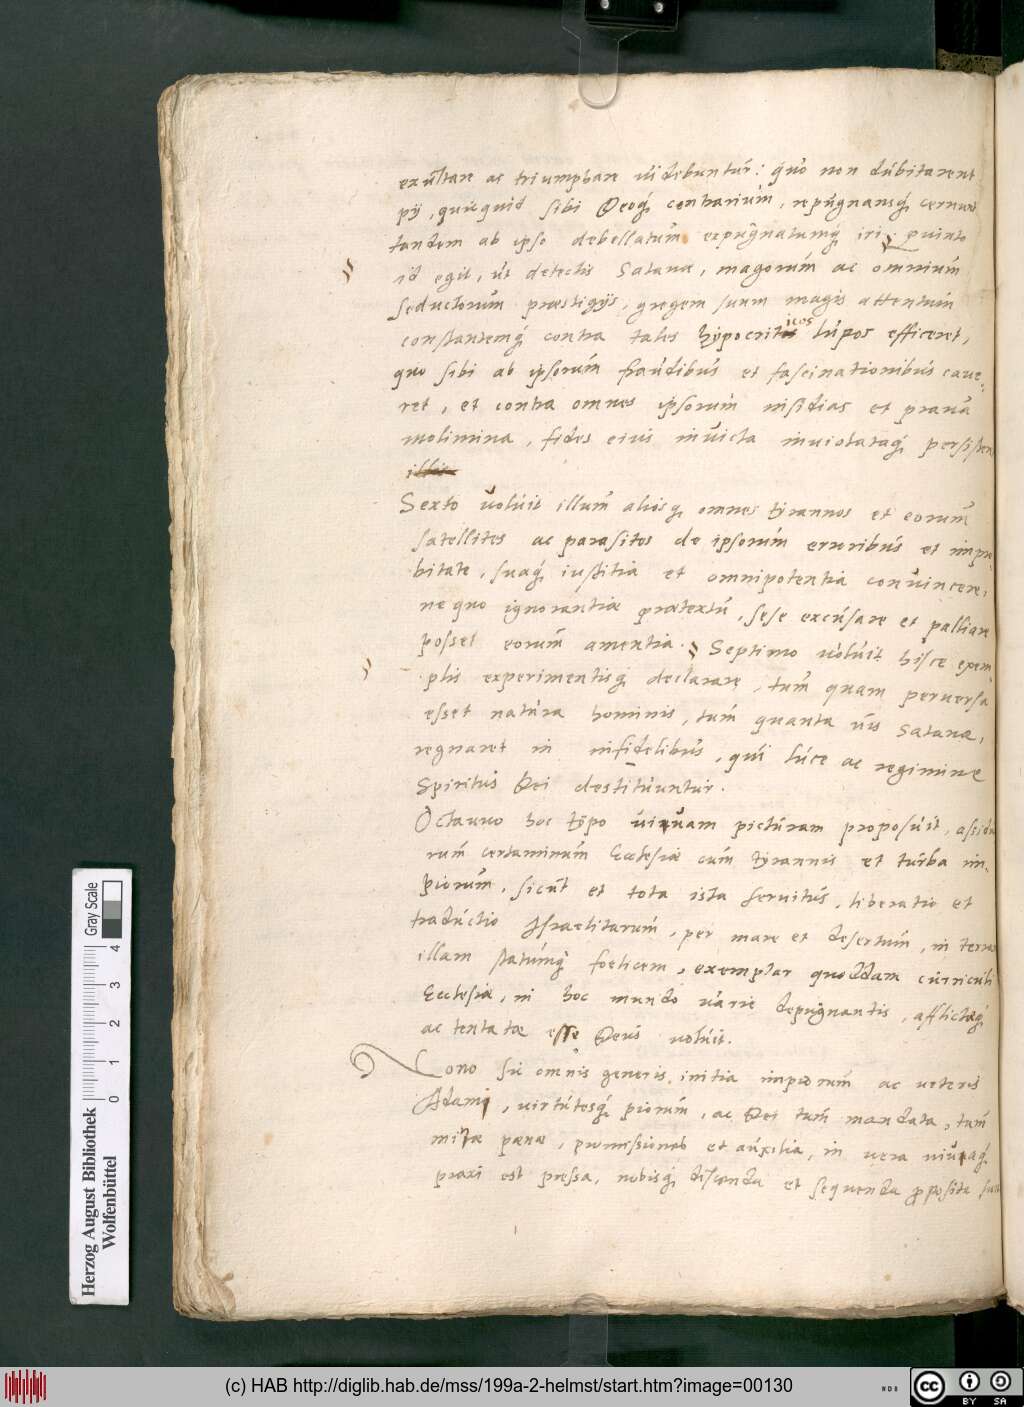 exultare ac triumphare videbuntur: quo non dubitarent
pij, quicquid sibi Deoq; contrarium, repugnansq; cernunt
tandem ab ipso debellatum expugnatumq; iri. Quinto
id egit, ut detectis Satanæ, magorum ac omnium
seductorum præstigijs, gregem suum magis attentum
constantemq; contra tales hypocriticos lupos efficeret,
quo sibi ab ipsorum fraudibus et fascinationibus cave-
ret, et contra omnes ipsorum insidias et prava
molimina, fides eius invicta inviolataq; persisteret
Sexto voluit illum aliosq; omnes tyrannos et eorum
satellites ac parasitos de ipsorum erroribus et impro-
bitate, suaq; iustitia et omnipotentia convincere,
ne quo ignorantiæ prætextu, sese excusare et palliare
posset eorum amentia. Septimo voluit hisce exem-
plis experimentisq; declarare, tum quam perversa
esset natura hominis, tum quanta vis Satanæ,
regnaret in infidelibus, qui luce ac regimine
Spiritus Dei destituuntur.
Octavo hoc typo vivam picturam proposuit, assiduo-
rum certaminum Ecclesiæ cum tyrannis et turba im-
piorum, sicut et tota ista servitus, liberatio et
traductio Israelitarum, per mare et desertum, in terram
illam statumq; foelicem, exemplar quoddam curriculi
Ecclesiæ, in hoc mundo varie depugnantis, afflictæq;
ac tentatæ esse Deus voluit.
Nono sic omnis generis initia impiorum ac veteris
Adami, virtutesq; piorum, ac Dei tum mandata, tum
pænæ, promissiones et auxilia, in vera vivaq;
praxi est pressa, nobisq; discenda et sequenda proposita sunt
Gray Scale
4
3
2
1
0
Herzog August Bibliothek
Wolfenbüttel
(c) HAB http://diglib.hab.de/mss/199a-2-helmst/start.htm?image=00130
WDB
cc
BY SA